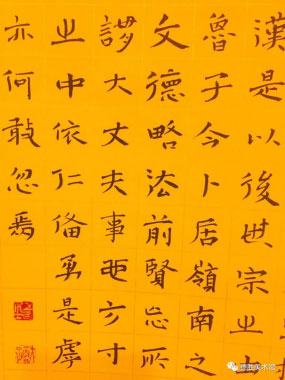 漢是以後世宗之
魯子今卜居嶺南之
文德略法前賢忘所
謬大丈夫事方寸
之中依仁偹勇是虔
亦何敢忽焉
美术馆